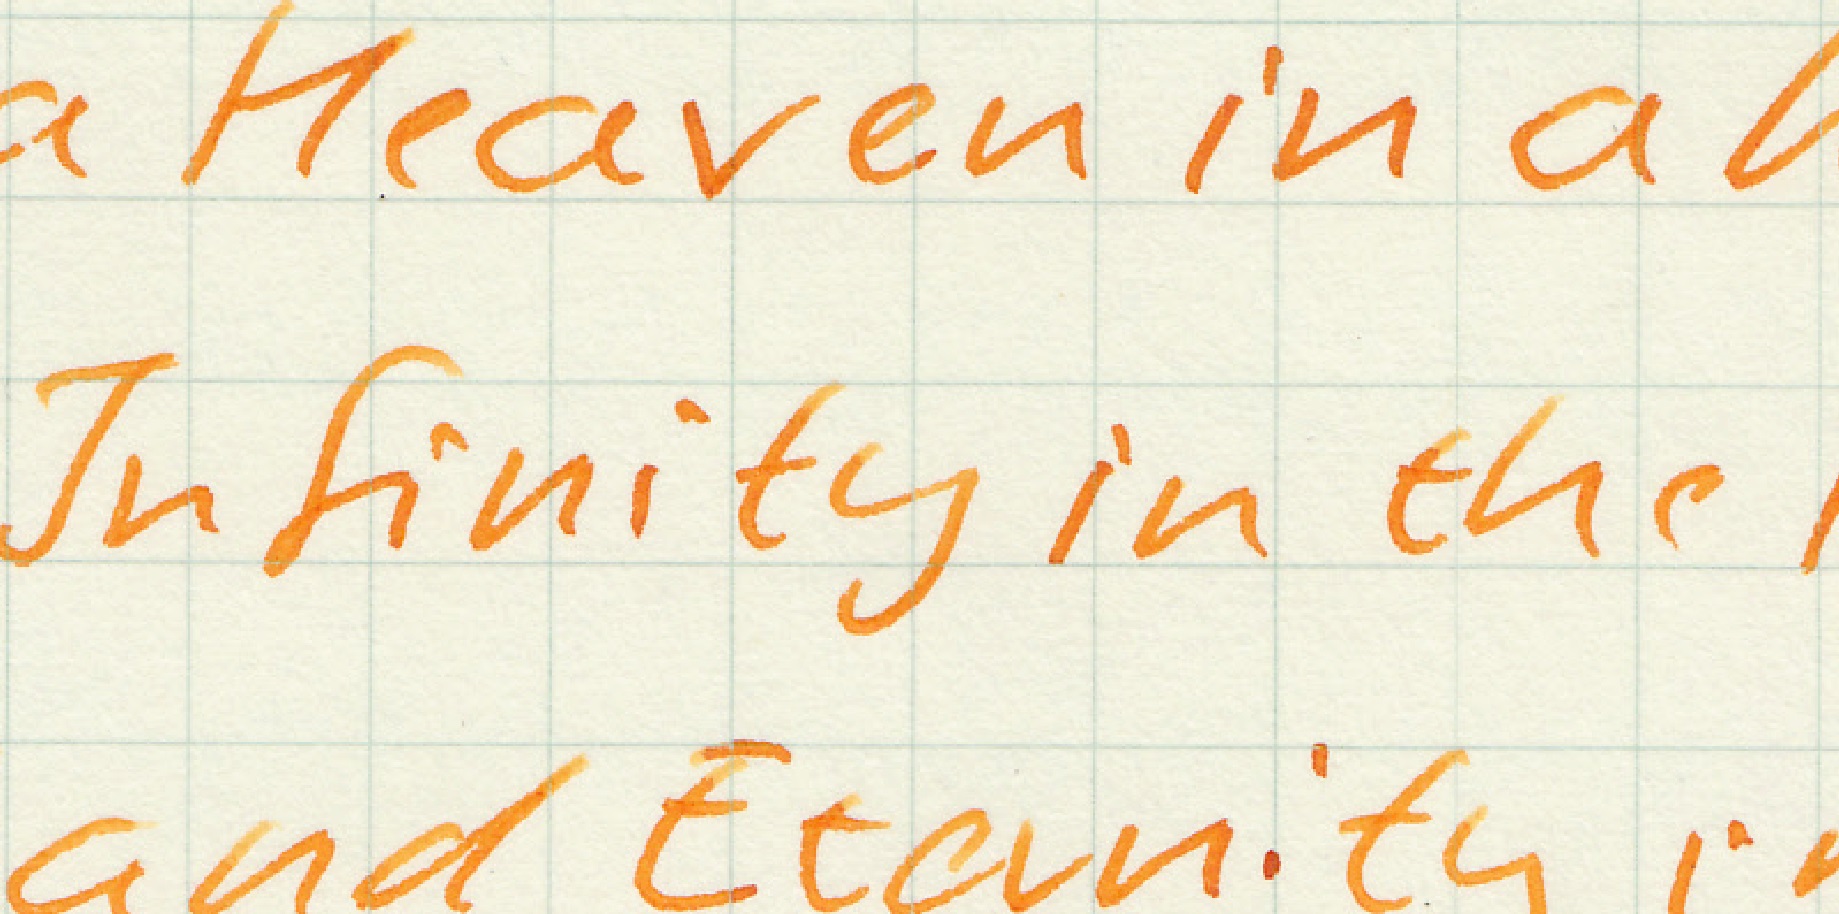 a Heaven in a
Infinity in the
and Eternity in